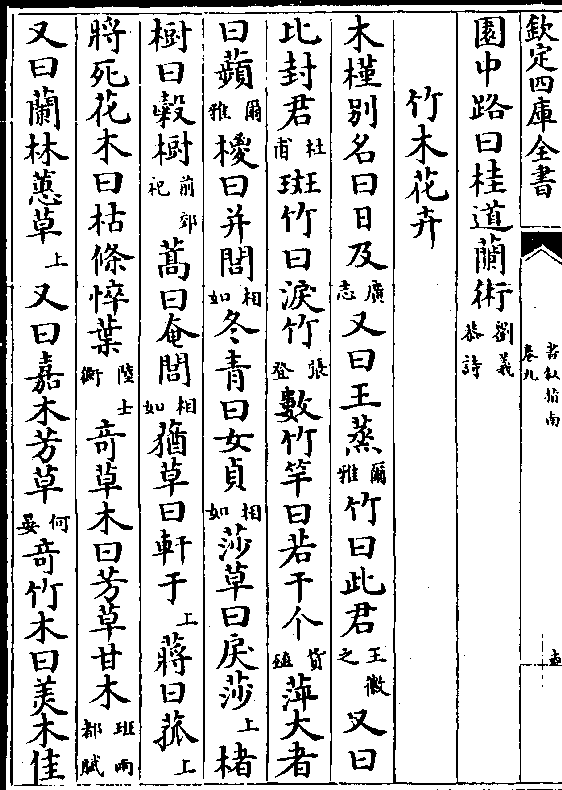 欽定四庫全書
書叙指南
卷九
園中路曰桂道蘭術劉義恭詩
竹木花卉
木槿别名曰日及廣志又曰王蒸爾雅竹曰此君王徽之又曰
比封君杜甫斑竹曰淚竹張登數竹竿曰若干个貨殖萍大者
曰蘋爾雅椶曰并閭相如冬青曰女貞相如莎草曰戾莎上楮
樹曰榖樹前郊祀蒿曰奄閭相如猶草曰軒于上蔣曰菰上
將死花木曰枯條悴葉陸士衡竒草木曰芳草甘木班兩都賦
又曰蘭林蕙草上又曰嘉木芳草何晏竒竹木曰美木佳